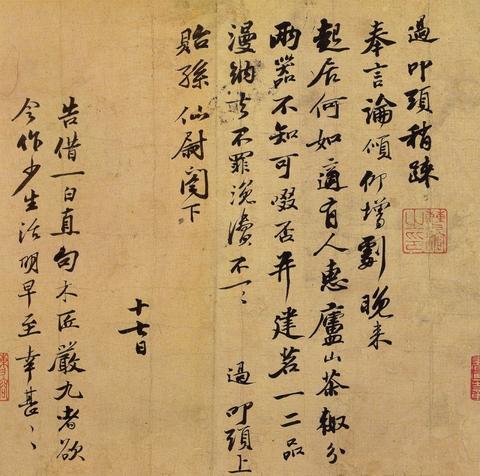 過叩頭稍疎
奉言論傾仰增劇晚来
起居何如適有人惠廬山茶輙分
兩器不知可啜否并建茗一二品
漫納去不罪浼瀆不一〻 過叩頭上
貽孫仙尉閤下
十七日
告借一白直句木匠嚴九者欲
令作少生活明早至幸甚〻